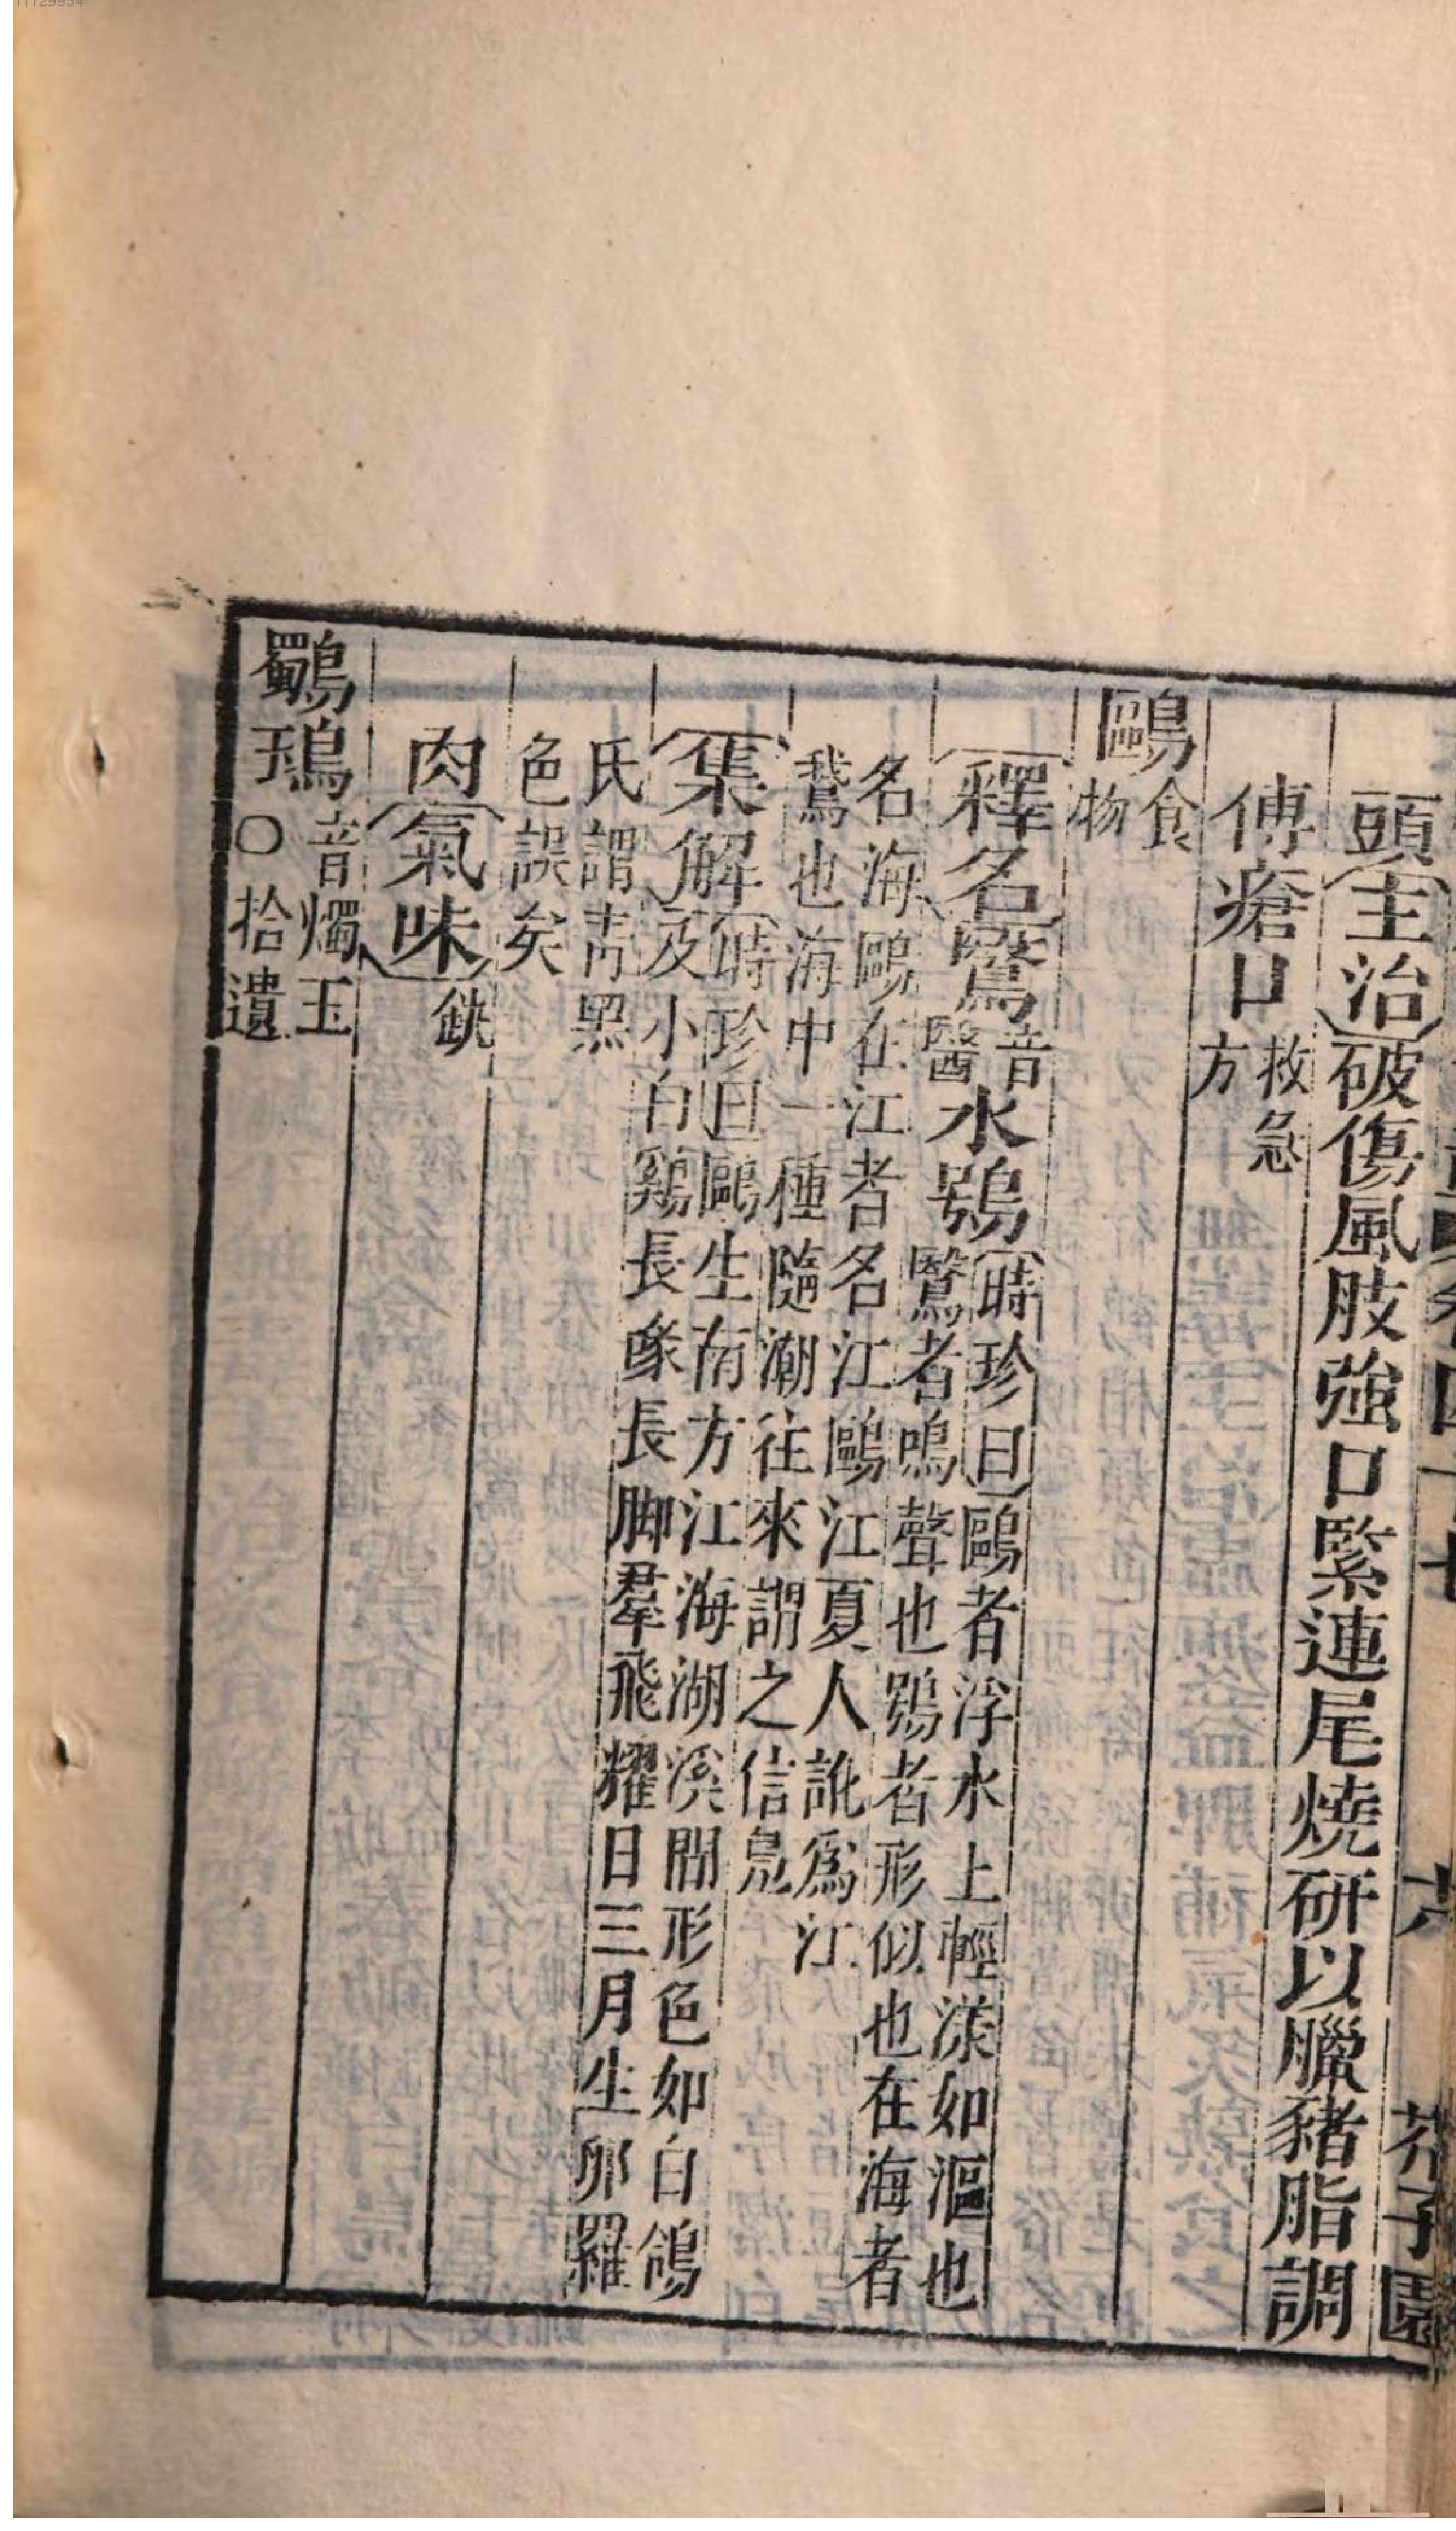 11129954
芥子園
頭主治破傷風肢強口緊連尾燒研以臘豬脂調
傅瘡口救急方
鷗食物
釋名鷖音醫水鴞時珍曰鷗者浮水上輕漾如漚也鷖者鳴聲也鴞者形似也在海者
名海鷗在江者名江鷗江夏人訛爲江鵞也海中一種隨潮往來謂之信鳧
集解時珍曰鷗生南方江海湖溪間形色如白鴿及小白雞長喙長脚羣飛耀日三月生卵羅
氏謂青黑色誤矣
肉氣味鉄
鸀鳿音燭玉○拾遺